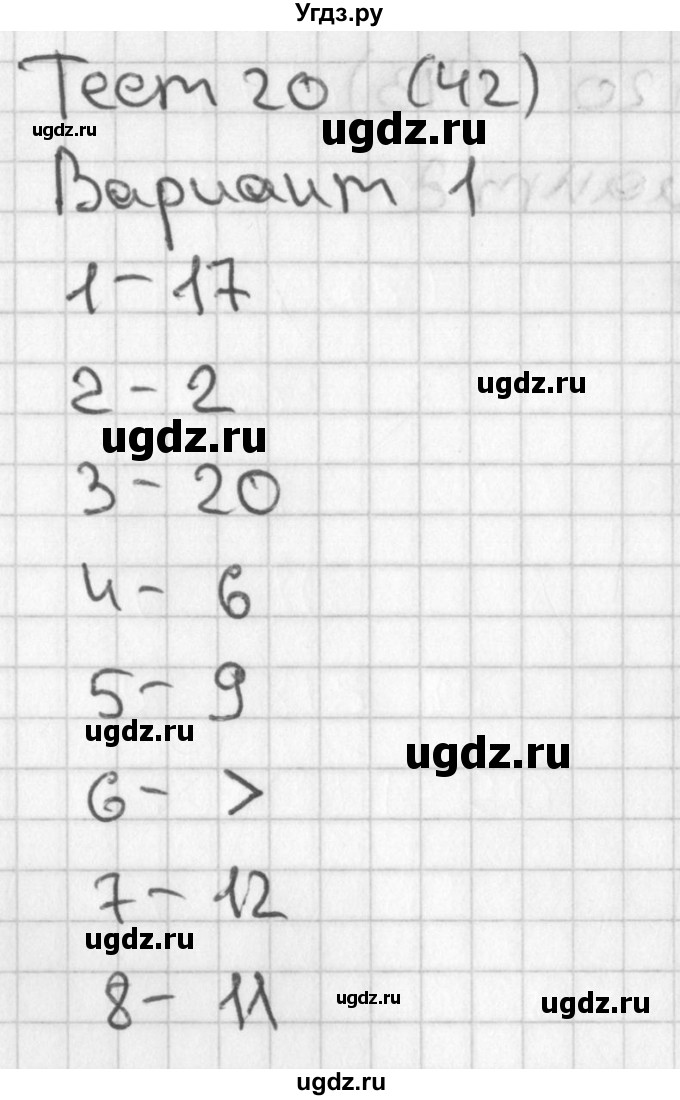 Угдз.ру
Тест 20 (42)
ugdz.ru
ugdz.ru
Вариант 1
1 - 17
2 - 2
ugdz.ru
ugdz.ru
3 - 20
4 - 6
5 - 9
ugdz.ru
ugdz.ru
6 - >
7 - 12
ugdz.ru
8 - 11
ugdz.ru
ugdz.ru
ugdz.ru